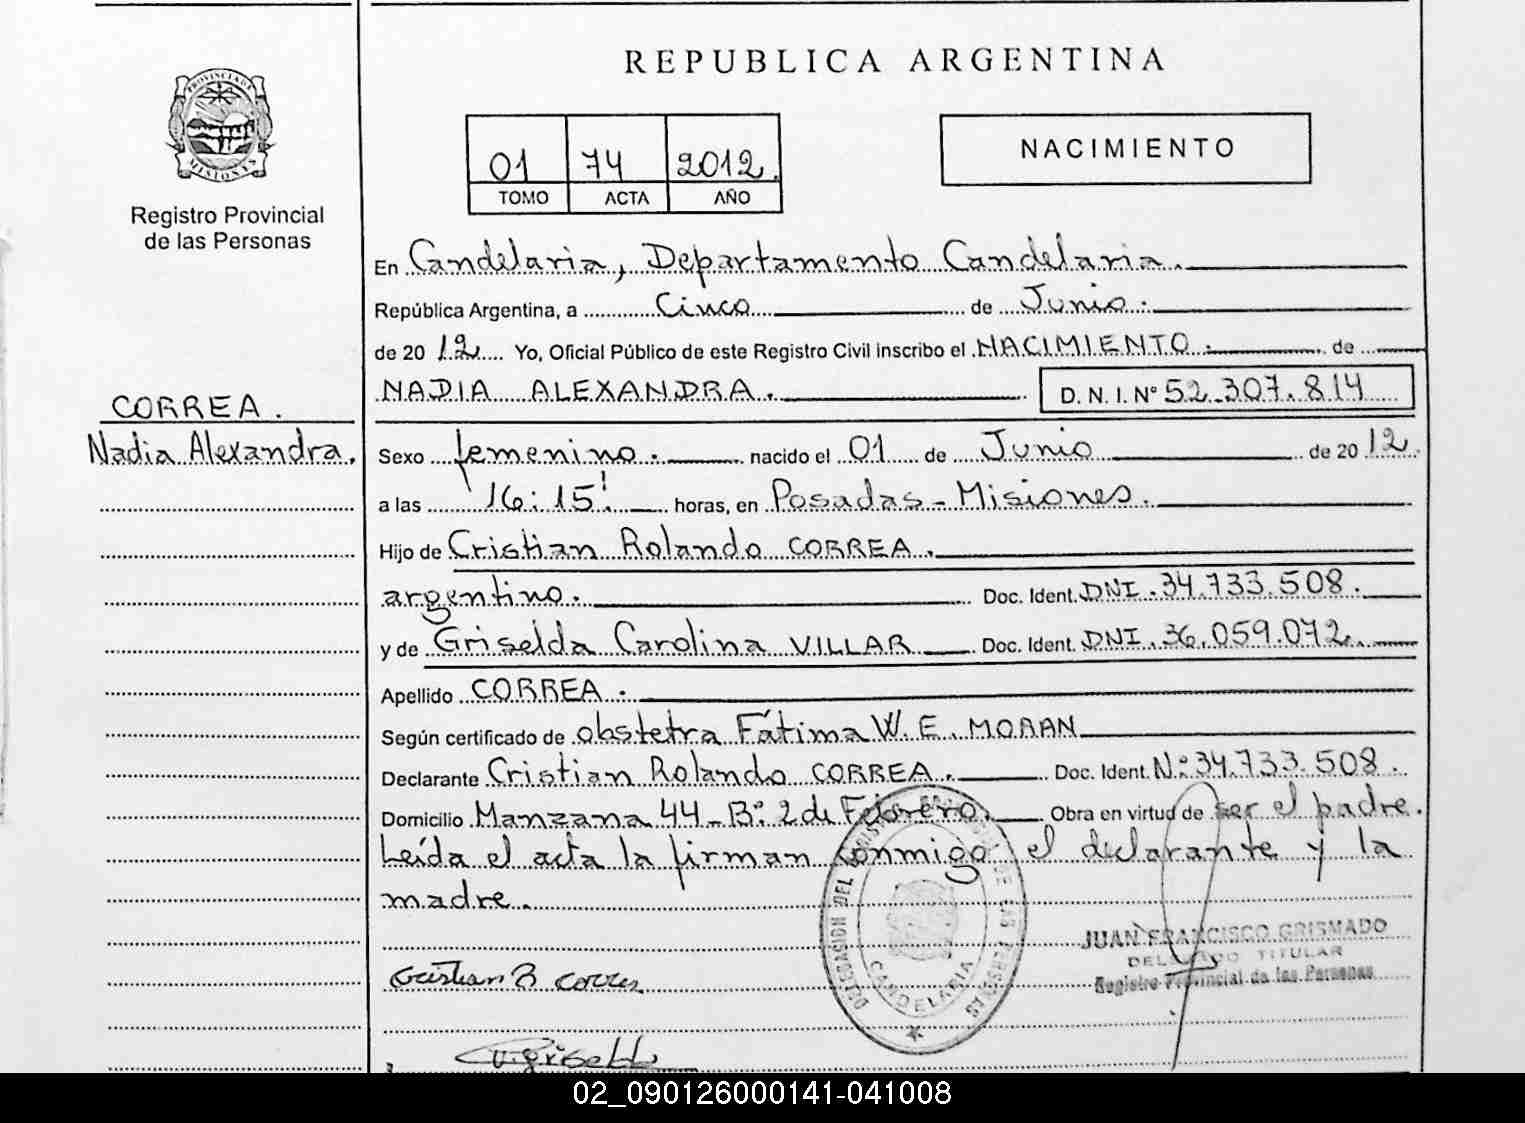 REPUBLICA ARGENTINA
PROVINCIA DE
MISIONES
Registro Provincial
de las Personas
01 74 2012.
TOMO ACTA AÑO
NACIMIENTO
En Candelaria, Departamento Candelaria.
República Argentina, a Cinco de Junio.
de 20 12 Yo, Oficial Público de este Registro Civil inscribo el NACIMIENTO. de
NADIA ALEXANDRA. D. N. I. Nº 52.307.814
CORREA.
Nadia Alexandra.
Sexo femenino. nacido el 01 de Junio de 20 12.
a las 16:15' horas, en Posadas - Misiones.
Hijo de Cristian Rolando CORREA.
argentino. Doc. Ident. DNI. 34.733.508.
y de Griselda Carolina VILLAR Doc. Ident. DNI. 36.059.072.
Apellido CORREA.
Según certificado de obstetra Fátima W. E. MORAN
Declarante Cristian Rolando CORREA. Doc. Ident. Nº 34.733.508.
Domicilio Manzana 44 - Bº 2 de Febrero. Obra en virtud de ser el padre.
Leída el acta la firman conmigo el declarante y la
madre.
DELEGACION DEL REGISTRO PROVINCIAL DE LAS PERSONAS
CANDELARIA
JUAN FRANCISCO GRISMADO
DELEGADO TITULAR
Registro Provincial de las Personas
Cristian R Correa
02_090126000141-041008